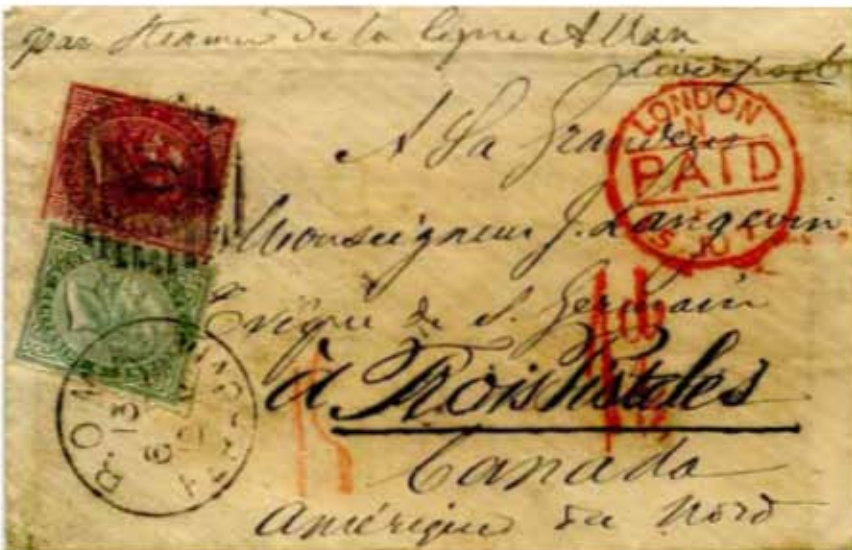 par Steamer de la ligne Allan
Liverpool
A Sa Grandeur
Monseigneur J. Langevin
Evêque de S. Germain
à Trois Pistoles
Canada
Amérique du Nord
LONDON
PAID
ROMA
13
6